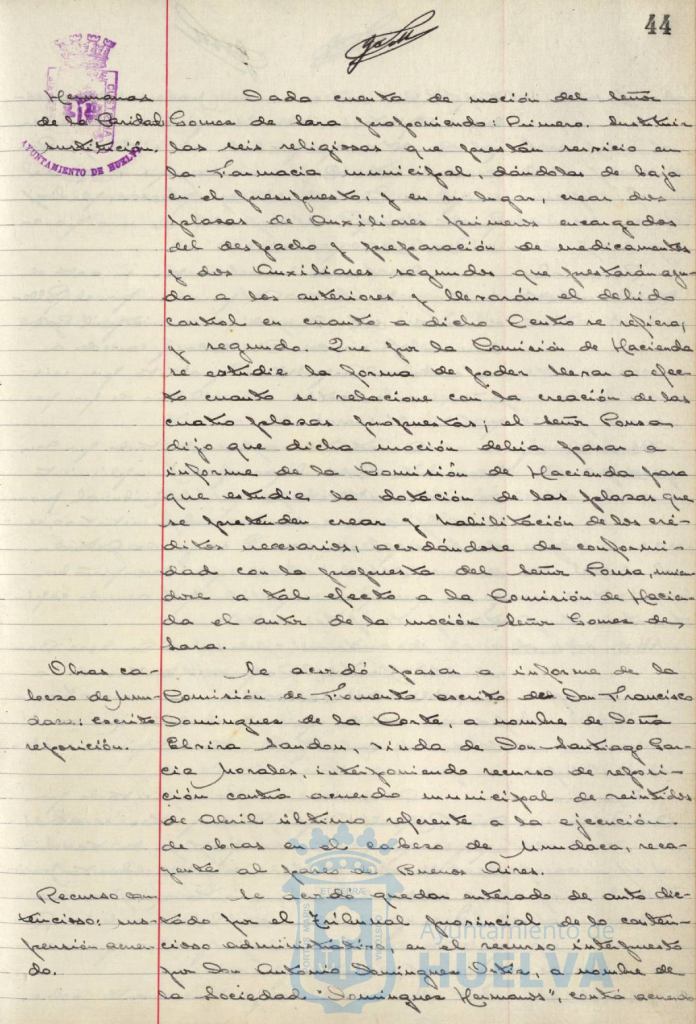 44
Hermanas
de la Caridad
sustitución.
AYUNTAMIENTO DE HUELVA
Dada cuenta de moción del Señor
Gomez de Lara proponiendo: Primero. Sustituir
las seis religiosas que prestan servicio en
la Farmacia municipal, dándolas de baja
en el presupuesto, y en su lugar, crear dos
plazas de Auxiliares primeros encargados
del despacho y preparación de medicamentos
y dos Auxiliares segundos que prestarán ayu-
da a los anteriores y llevarán el debido
control en cuanto a dicho Centro se refiera;
y segundo. Que por la Comisión de Hacienda
se estudie la forma de poder llevar a efec-
to cuanto se relacione con la creación de las
cuatro plazas propuestas; el Señor Ponsa
dijo que dicha moción debia pasar a
informe de la Comisión de Hacienda para
que estudie la dotación de las plazas que
se pretenden crear y habilitación de los cré-
ditos necesarios, acordándose de conformi-
dad con la propuesta del Señor Ponsa, unien-
dose a tal efecto a la Comisión de Hacien-
da el autor de la moción Señor Gomez de
Lara.
Obras ca-
bezo de Mun-
daca: escrito
reposición.
Se acordó pasar a informe de la
Comisión de Fomento escrito de Don Francisco
Dominguez de la Corte, a nombre de Doña
Elvira Sandon, viuda de Don Santiago Gar-
cia Morales, interponiendo recurso de reposi-
ción contra acuerdo municipal de veintidos
de Abril último referente a la ejecución
de obras en el cabezo de Mundaca, reca-
yente al paseo de Buenos Aires.
Recurso con-
tencioso: sus-
pensión acuer-
do.
Se acordó quedar enterado de auto dic-
tado por el Tribunal provincial de lo conten-
cioso administrativo, en el recurso interpuesto
por Don Antonio Dominguez Ortiz, a nombre de
la Sociedad "Dominguez Hermanos", contra acuerdo
Ayuntamiento de
HUELVA